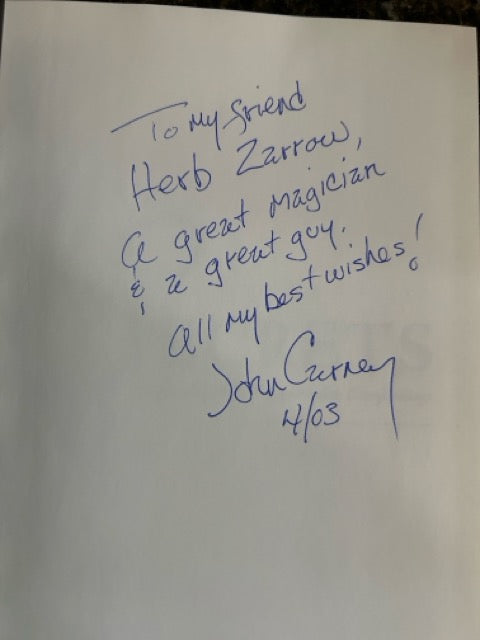 To my friend
Herb Zarrow,
a great magician
& a great guy.
All my best wishes!
John Carney
4/03